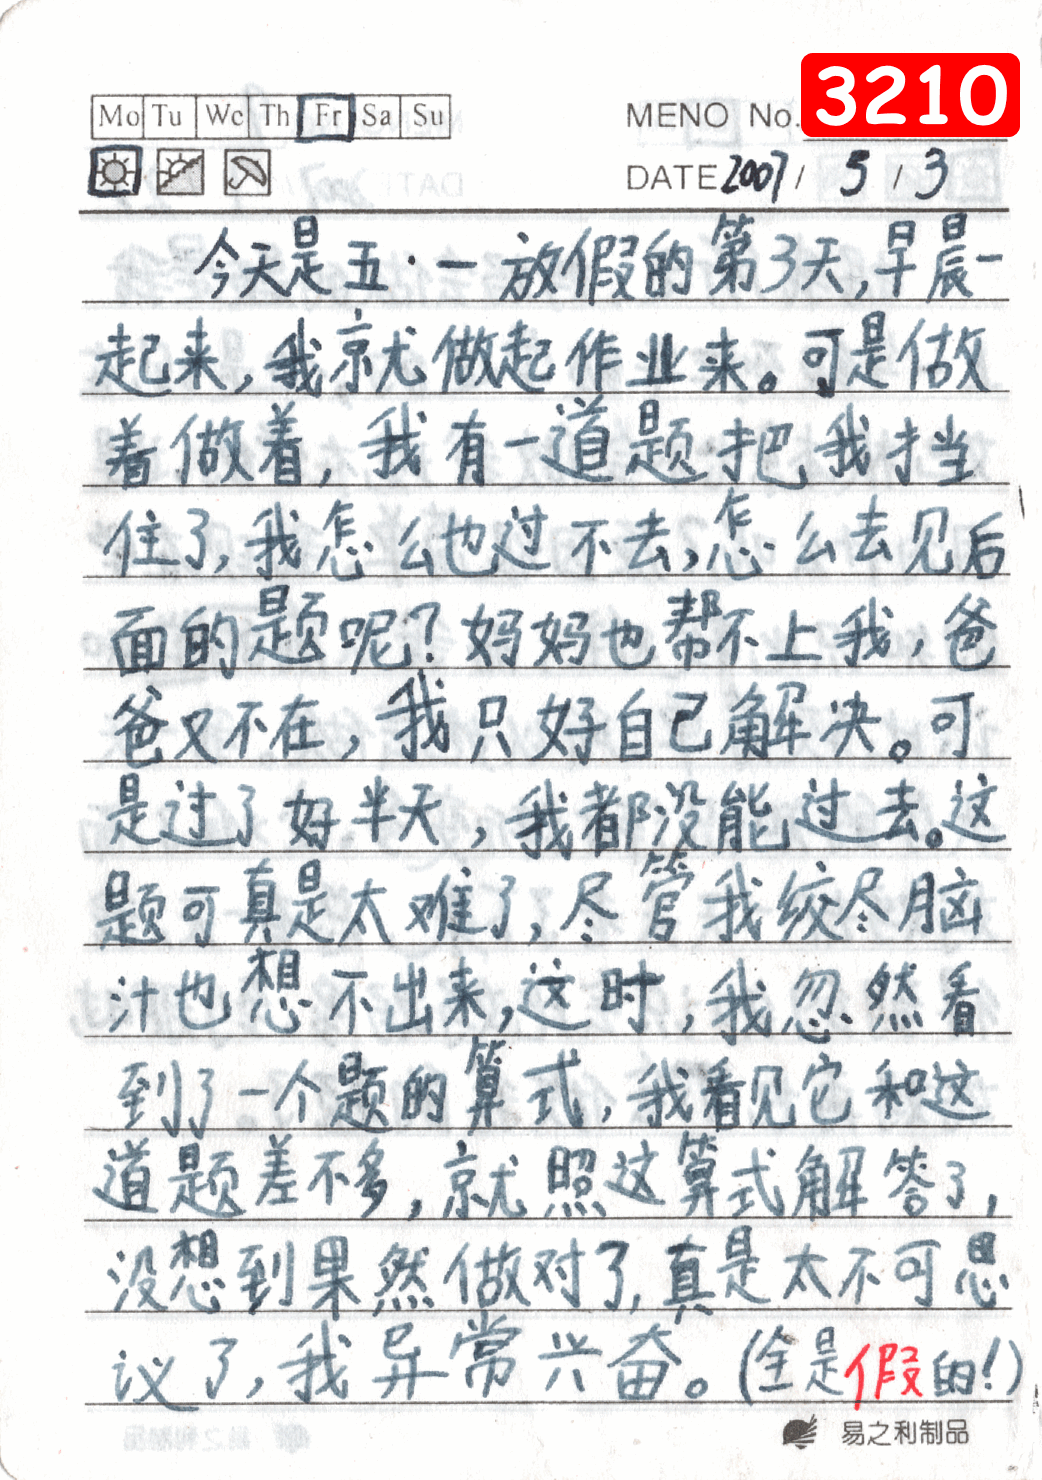 3210
Mo Tu We Th Fr Sa Su
MENO No.
DATE 2007 / 5 / 3
今天是五·一放假的第3天,早晨一
起来,我就做起作业来。可是做
着做着,我有一道题把我挡
住了,我怎么也过不去,怎么去见后
面的题呢?妈妈也帮不上我,爸
爸又不在,我只好自己解决。可
是过了好半天,我都没能过去。这
题可真是太难了,尽管我绞尽脑
汁也想不出来,这时,我忽然看
到了一个题的算式,我看见它和这
道题差不多,就照这算式解答了,
没想到果然做对了,真是太不可思
议了,我异常兴奋。(全是假的!)
易之利制品